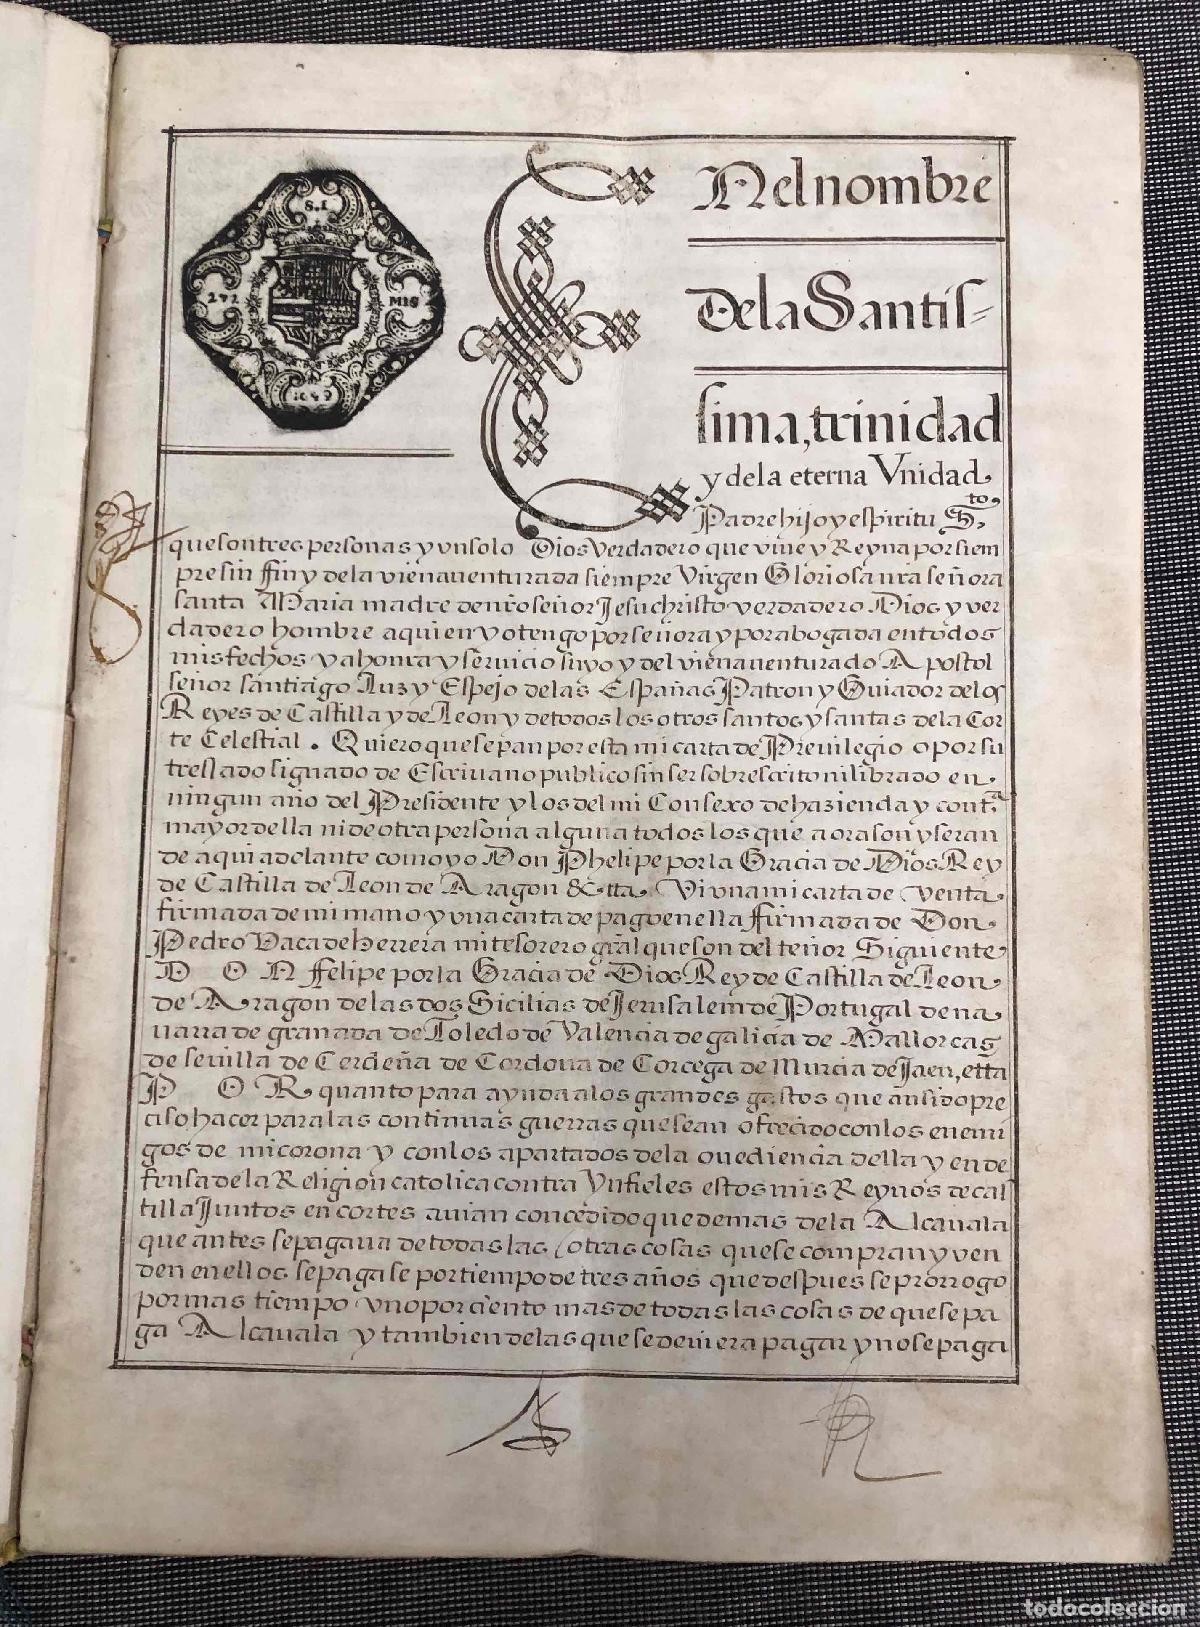 S.I
272 MIS
1649
E Nel nombre
De la Santis=
sima, trinidad
y dela eterna Vnidad
Padre hijo y espiritu S.to
que son tres personas y vn solo Dios Verdadero que viue y Reyna por siem
pre sin fin y dela vienauenturada siempre Virgen Gloriosa nra señora
santa Maria madre de nro señor Jesuchristo verdadero Dios y ver
dadero hombre a quien yo tengo por señora y por abogada en todos
mis fechos y a honra y seruicio suyo y del vienauenturado Apostol
señor santiago Luz y Espejo de las Españas Patron y Guiador de los
Reyes de Castilla y de Leon y de todos los otros santos y santas dela Cor
te Celestial. Quiero que sepan por esta mi carta de Preuilegio o por su
treslado signado de Escriuano publico sin ser sobrescrito ni librado en
ningun año del Presidente y los del mi Consexo de hazienda y cont.a
mayor della ni de otra persona alguna todos los que aora son y seran
de aqui adelante como yo Don Phelipe por la Gracia de Dios Rey
de Castilla de Leon de Aragon &tta. Vi vna mi carta de venta
firmada de mi mano y vna carta de pago en ella firmada de Don
Pedro Vaca de Herrera mi tesorero gral que son del teñor Siguiente
D O N ffelipe por la Gracia de Dios Rey de Castilla de Leon
de Aragon de las dos Sicilias de Jerusalem de Portugal de na
uarra de granada de Toledo de Valencia de galicia de Mallorcas
de seuilla de Cerdeña de Cordoua de Corcega de Murcia de Jaen, etta
P O R quanto para ayuda a los grandes gastos que an sido pre
ciso hacer para las continuas guerras que se an ofrecido con los enemi
gos de mi corona y con los apartados dela ouediencia della y en de
fensa de la Religion catolica contra Ynfieles estos mis Reynos de cas
tilla Juntos en cortes auian concedido que demas dela Alcauala
que antes se pagaua de todas las otras cosas que se compran y ven
den en ellos se pagase por tiempo de tres años que despues se prorrogo
por mas tiempo vno por ciento mas de todas las cosas de que se pa
ga Alcauala y tambien de las que se deuiera pagar y no se paga
todocoleccion